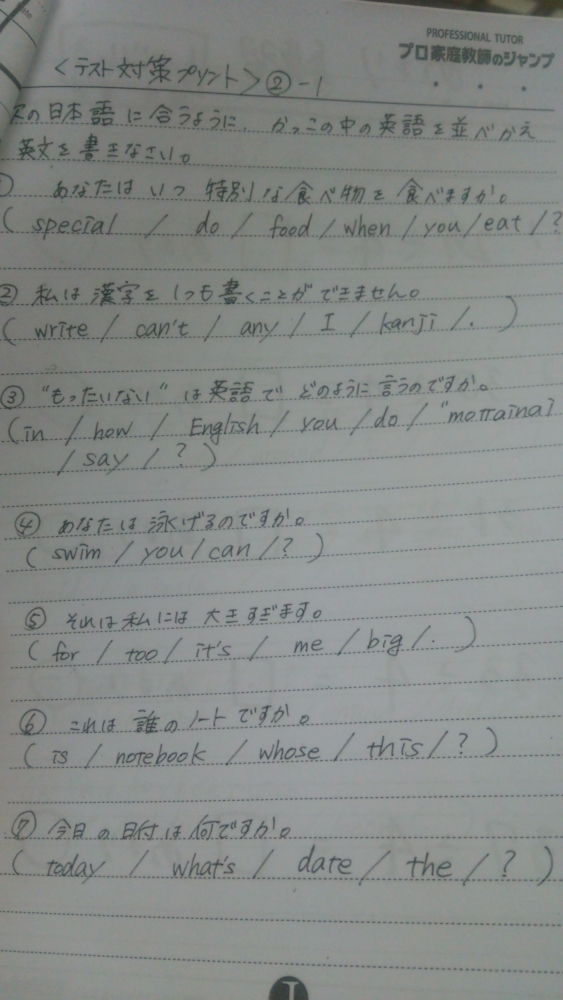 PROFESSIONAL TUTOR
プロ家庭教師のジャンプ
<テスト対策プリント>②-1
次の日本語に合うように、かっこの中の英語を並べかえ
英文を書きなさい。
① あなたはいつ特別な食べ物を食べますか。
( special / do / food / when / you / eat / ?
② 私は漢字を1つも書くことができません。
( write / can't / any / I / kanji / . )
③ "もったいない"は英語でどのように言うのですか。
( in / how / English / you / do / "mottainai
/ say / ? )
④ あなたは泳げるのですか。
( swim / you / can / ? )
⑤ それは私には大きすぎます。
( for / too / it's / me / big / . )
⑥ これは誰のノートですか。
( is / notebook / whose / this / ? )
⑦ 今日の日付は何ですか。
( today / what's / date / the / ? )
1